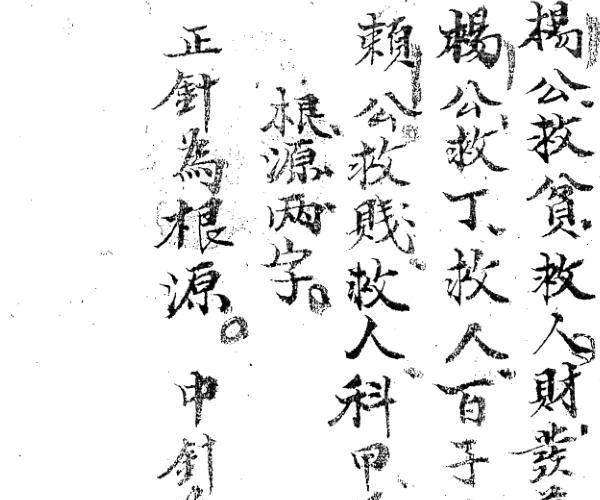 楊公救貧救人財發
楊公救丁救人百子
賴公救賤救人科甲
根源两字。
正針為根源。中針